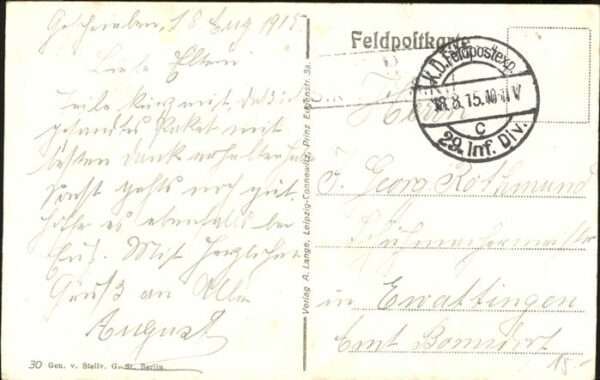 Geschrieben, 18 Aug 1915
Liebe Eltern
teile kurz mit, daß ich
gesandtes Paket mit
besten Dank erhalten habe
sonst gehts noch gut
hoffe es ebenfalls bei
Euch. Mit herzlichem
Gruß an Alle
August
30 Gen. v. Stellv. G.-St. Berlin.
Verlag A. Lange, Leipzig-Connewitz, Prinz Eugenstr. 3a.
Feldpostkarte
K.D. Feldpostexp.
18.8.15. 10-11 V
c
29. Inf. Div.
Herrn
J. Georg Rothmund
Schuhmachermeister
in Ewattingen
Amt Bonndorf
15-